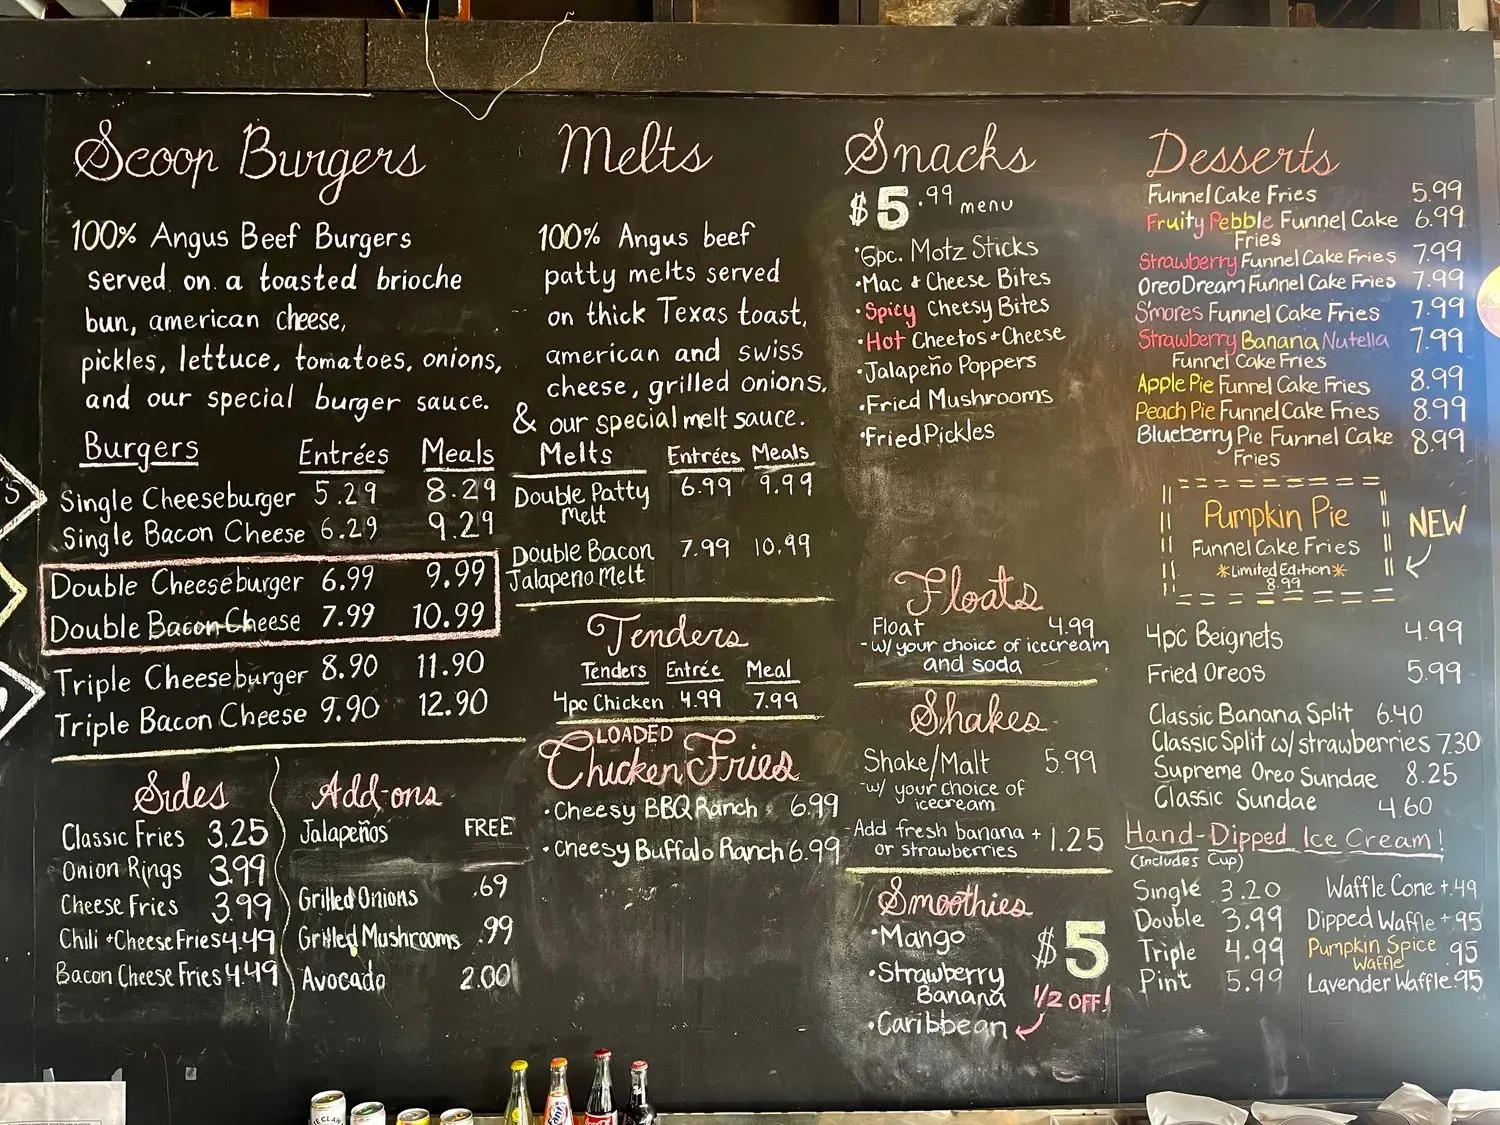 Scoop Burgers
100% Angus Beef Burgers
served on a toasted brioche
bun, american cheese,
pickles, lettuce, tomatoes, onions,
and our special burger sauce.
Burgers Entrées Meals
Single Cheeseburger 5.29 8.29
Single Bacon Cheese 6.29 9.29
Double Cheeseburger 6.99 9.99
Double Bacon Cheese 7.99 10.99
Triple Cheeseburger 8.90 11.90
Triple Bacon Cheese 9.90 12.90
Sides
Classic Fries 3.25
Onion Rings 3.99
Cheese Fries 3.99
Chili + Cheese Fries 4.49
Bacon Cheese Fries 4.49
Add-ons
Jalapeños FREE
Grilled Onions .69
Grilled Mushrooms .99
Avocado 2.00
Melts
100% Angus beef
patty melts served
on thick Texas toast,
american and swiss
cheese, grilled onions,
& our special melt sauce.
Melts Entrées Meals
Double Patty 6.99 9.99
Melt
Double Bacon 7.99 10.99
Jalapeno Melt
Tenders
Tenders Entrée Meal
4pc Chicken 4.99 7.99
LOADED
Chicken Fries
• Cheesy BBQ Ranch 6.99
• Cheesy Buffalo Ranch 6.99
Snacks
$5.99 menu
• 6pc. Motz Sticks
• Mac & Cheese Bites
• Spicy Cheesy Bites
• Hot Cheetos + Cheese
• Jalapeño Poppers
• Fried Mushrooms
• Fried Pickles
Floats
Float 4.99
- w/ your choice of icecream
and soda
Shakes
Shake/Malt 5.99
- w/ your choice of
icecream
- Add fresh banana + 1.25
or strawberries
Smoothies
• Mango $5
• Strawberry
Banana 1/2 OFF!
• Caribbean
Desserts
Funnel Cake Fries 5.99
Fruity Pebble Funnel Cake 6.99
Fries
Strawberry Funnel Cake Fries 7.99
Oreo Dream Funnel Cake Fries 7.99
S'mores Funnel Cake Fries 7.99
Strawberry Banana Nutella 7.99
Funnel Cake Fries
Apple Pie Funnel Cake Fries 8.99
Peach Pie Funnel Cake Fries 8.99
Blueberry Pie Funnel Cake 8.99
Fries
Pumpkin Pie NEW
Funnel Cake Fries
*Limited Edition*
8.99
4pc Beignets 4.99
Fried Oreos 5.99
Classic Banana Split 6.40
Classic Split w/ strawberries 7.30
Supreme Oreo Sundae 8.25
Classic Sundae 4.60
Hand-Dipped Ice Cream!
(Includes Cup)
Single 3.20 Waffle Cone +.49
Double 3.99 Dipped Waffle +.95
Triple 4.99 Pumpkin Spice .95
Waffle
Pint 5.99 Lavender Waffle .95